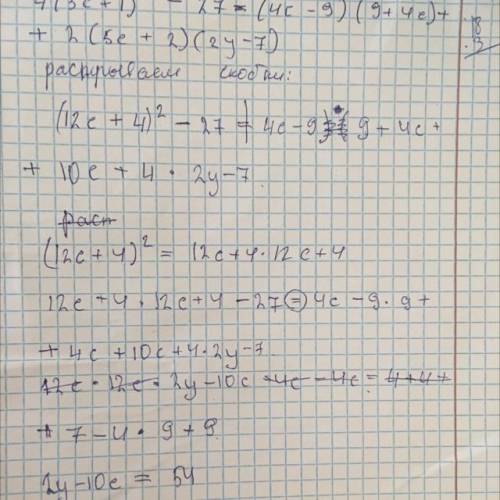 4(3c+1) - 27 = (4c - 9)(9+4c)+
+ 2(5c + 2)(2y-7)
раскрываем скобки:
(12c + 4)² - 27 = 4c - 9 9 + 4c +
+ 10c + 4 · 2y-7
раст
(12c+4)² = 12c+4·12c+4
12c+4·12c+4-27=4c-9·9+
+ 4c +10c+4·2y-7
12c·12c·2y-10c-4c-4c=4+4+
+ 7-4·9+9
2y-10c = 54